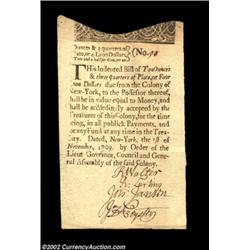 Ounces & 3 quarters of
Plate, or 4 Lion Dollars,
(No. 90
THis Indented Bill of Two Ounces
& three Quarters of Plate, or Four
Lion Dollars due from the Colony of
New-York, to the Possessor thereof,
shall be in value equal to Money, and
shall be accordingly accepted by the
Treasurer of this Colony, for the time
being, in all publick Payments, and
for any Fund at any time in the Treasury.
Dated, New-York, the 1st of
November, 1709. by Order of the
Lieut Governor, Council and General
Assembly of the said Colony.
R Walter
Jon Jansen
© 2002 Heritage Coin